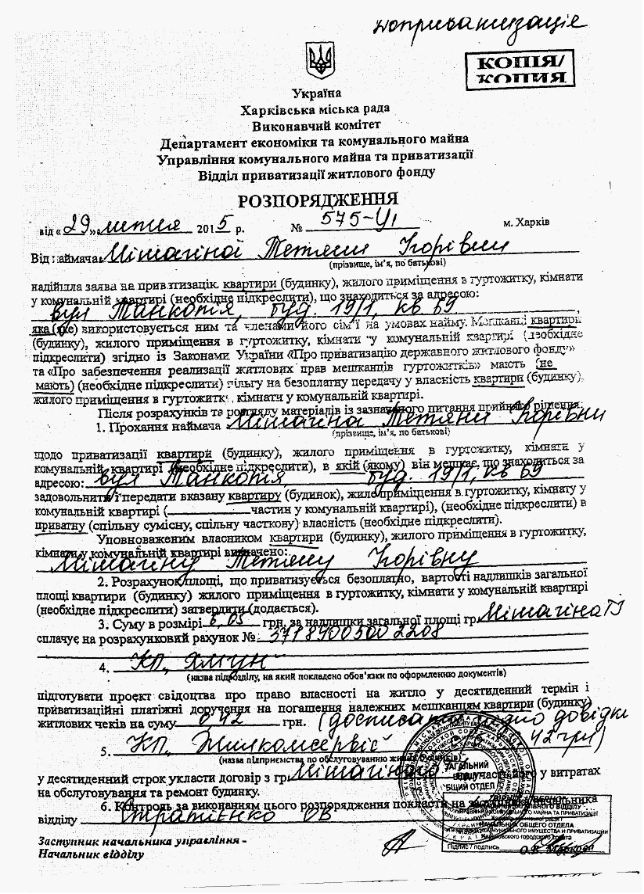 КОПІЯ/
КОПИЯ
Україна
Харківська міська рада
Виконавчий комітет
Департамент економіки та комунального майна
Управління комунального майна та приватизації
Відділ приватизації житлового фонду
РОЗПОРЯДЖЕННЯ
від «29» липня 2015 р. № 575-У1 м. Харків
Від наймача Мішагіної Тетяни Ігорівни
(прізвище, ім'я, по батькові)
надійшла заява на приватизацію квартири (будинку), жилого приміщення в гуртожитку, кімнати
у комунальній квартирі (необхідне підкреслити), що знаходиться за адресою:
вул Танкопія, буд. 19/1, кв 69
яка (не) використовується ним та членами його сім'ї на умовах найму. Мешканці квартири
(будинку), жилого приміщення в гуртожитку, кімнати у комунальній квартирі (необхідне
підкреслити) згідно із Законами України «Про приватизацію державного житлового фонду»
та «Про забезпечення реалізації житлових прав мешканців гуртожитків» мають (не
мають) (необхідне підкреслити) пільгу на безоплатну передачу у власність квартири (будинку),
жилого приміщення в гуртожитку, кімнати у комунальній квартирі.
Після розрахунків та розгляду матеріалів із зазначеного питання прийнято рішення:
1. Прохання наймача Мішагіна Тетяни Ігорівни
(прізвище, ім'я, по батькові)
щодо приватизації квартири (будинку), жилого приміщення в гуртожитку, кімнати у
комунальній квартирі (необхідне підкреслити), в якій (якому) він мешкає, що знаходиться за
адресою: вул Танкопія, буд. 19/1, кв 69
задовольнити і передати вказану квартиру (будинок), жиле приміщення в гуртожитку, кімнату у
комунальній квартирі ( частин у комунальній квартирі), (необхідне підкреслити) в
приватну (спільну сумісну, спільну часткову) власність (необхідне підкреслити).
Уповноваженим власником квартири (будинку), жилого приміщення в гуртожитку,
кімнати у комунальній квартирі визначено:
Мішагіну Тетяну Ігорівну
2. Розрахунок площі, що приватизується безоплатно, вартості надлишків загальної
площі квартири (будинку) жилого приміщення в гуртожитку, кімнати у комунальній квартирі
(необхідне підкреслити) затвердити (додається).
3. Суму в розмірі грн. за надлишки загальної площі гр. Мішагіна Т І
сплачує на розрахунковий рахунок №
4. КП
(назва підрозділу, на який покладено обов'язки по оформленню документів)
підготувати проект свідоцтва про право власності на житло у десятиденний термін і
приватизаційні платіжні доручення на погашення належних мешканцям квартири (будинку)
житлових чеків на суму грн. (
5. КП „Жилкомсервіс"
(назва підприємства по обслуговуванню
у десятиденний строк укласти договір з гр. Мішагіною у витратах
на обслуговування та ремонт будинку.
6. Контроль за виконанням цього розпорядження покласти на начальника
відділу
Заступник начальника управління -
Начальник відділу
ЗАГАЛЬНИЙ
ВІДДІЛ
ОБЩИЙ ОТДЕЛ
НАЧАЛЬНИК ОБЩЕГО ОТДЕЛА
Підпис / подпись